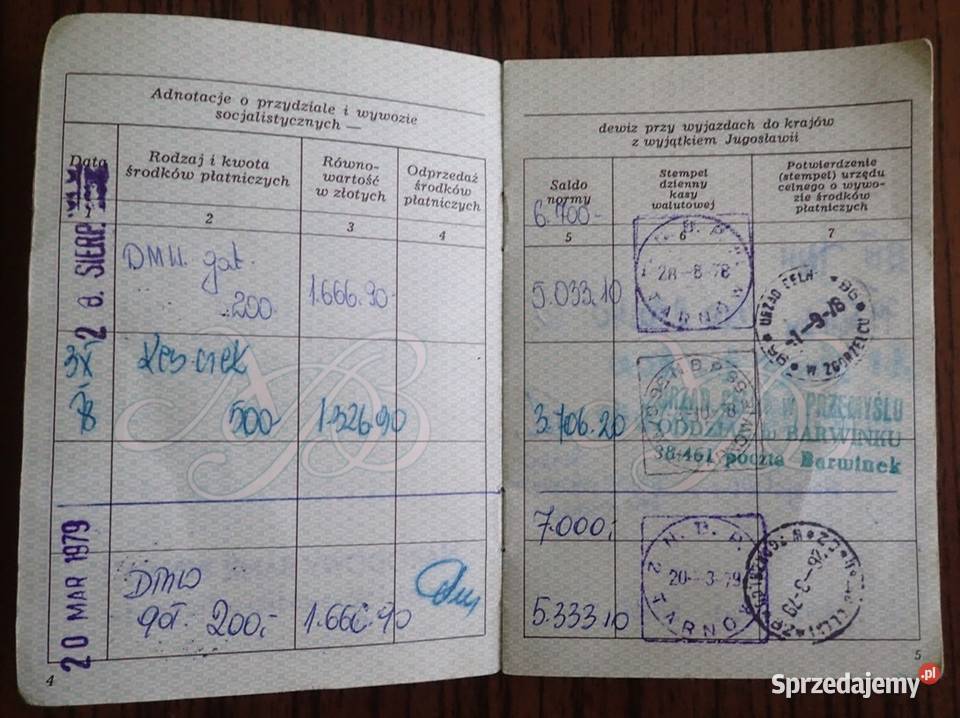 Adnotacje o przydziale i wywozie
socjalistycznych —
Data
Rodzaj i kwota
środków płatniczych
Równo-
wartość
w złotych
Odprzedaż
środków
płatniczych
2
3
4
2 8. SIERP.
DMW. got.
200.
1.666.90
3 X
78
Kčs. czek
500-
1.326.90
20 MAR 1979
DMW
got. 200,-
1.666.90
4
dewiz przy wyjazdach do krajów
z wyjątkiem Jugosławii
Saldo
normy
Stempel
dzienny
kasy
walutowej
Potwierdzenie
(stempel) urzędu
celnego o wywo-
zie środków
płatniczych
6.700.-
5
6
7
5.033.10
28-8-78
TARNÓW
URZĄD CELN
-1-9-78
W ZGORZELCU
3.706.20
URZĄD CELNY w PRZEMYŚLU
ODDZIAŁ w BARWINKU
38-461 poczta Barwinek
7.000,-
5.333.10
N.B.P.
20-3-79
2 TARNÓW
26-3-79
5
Sprzedajemy.pl